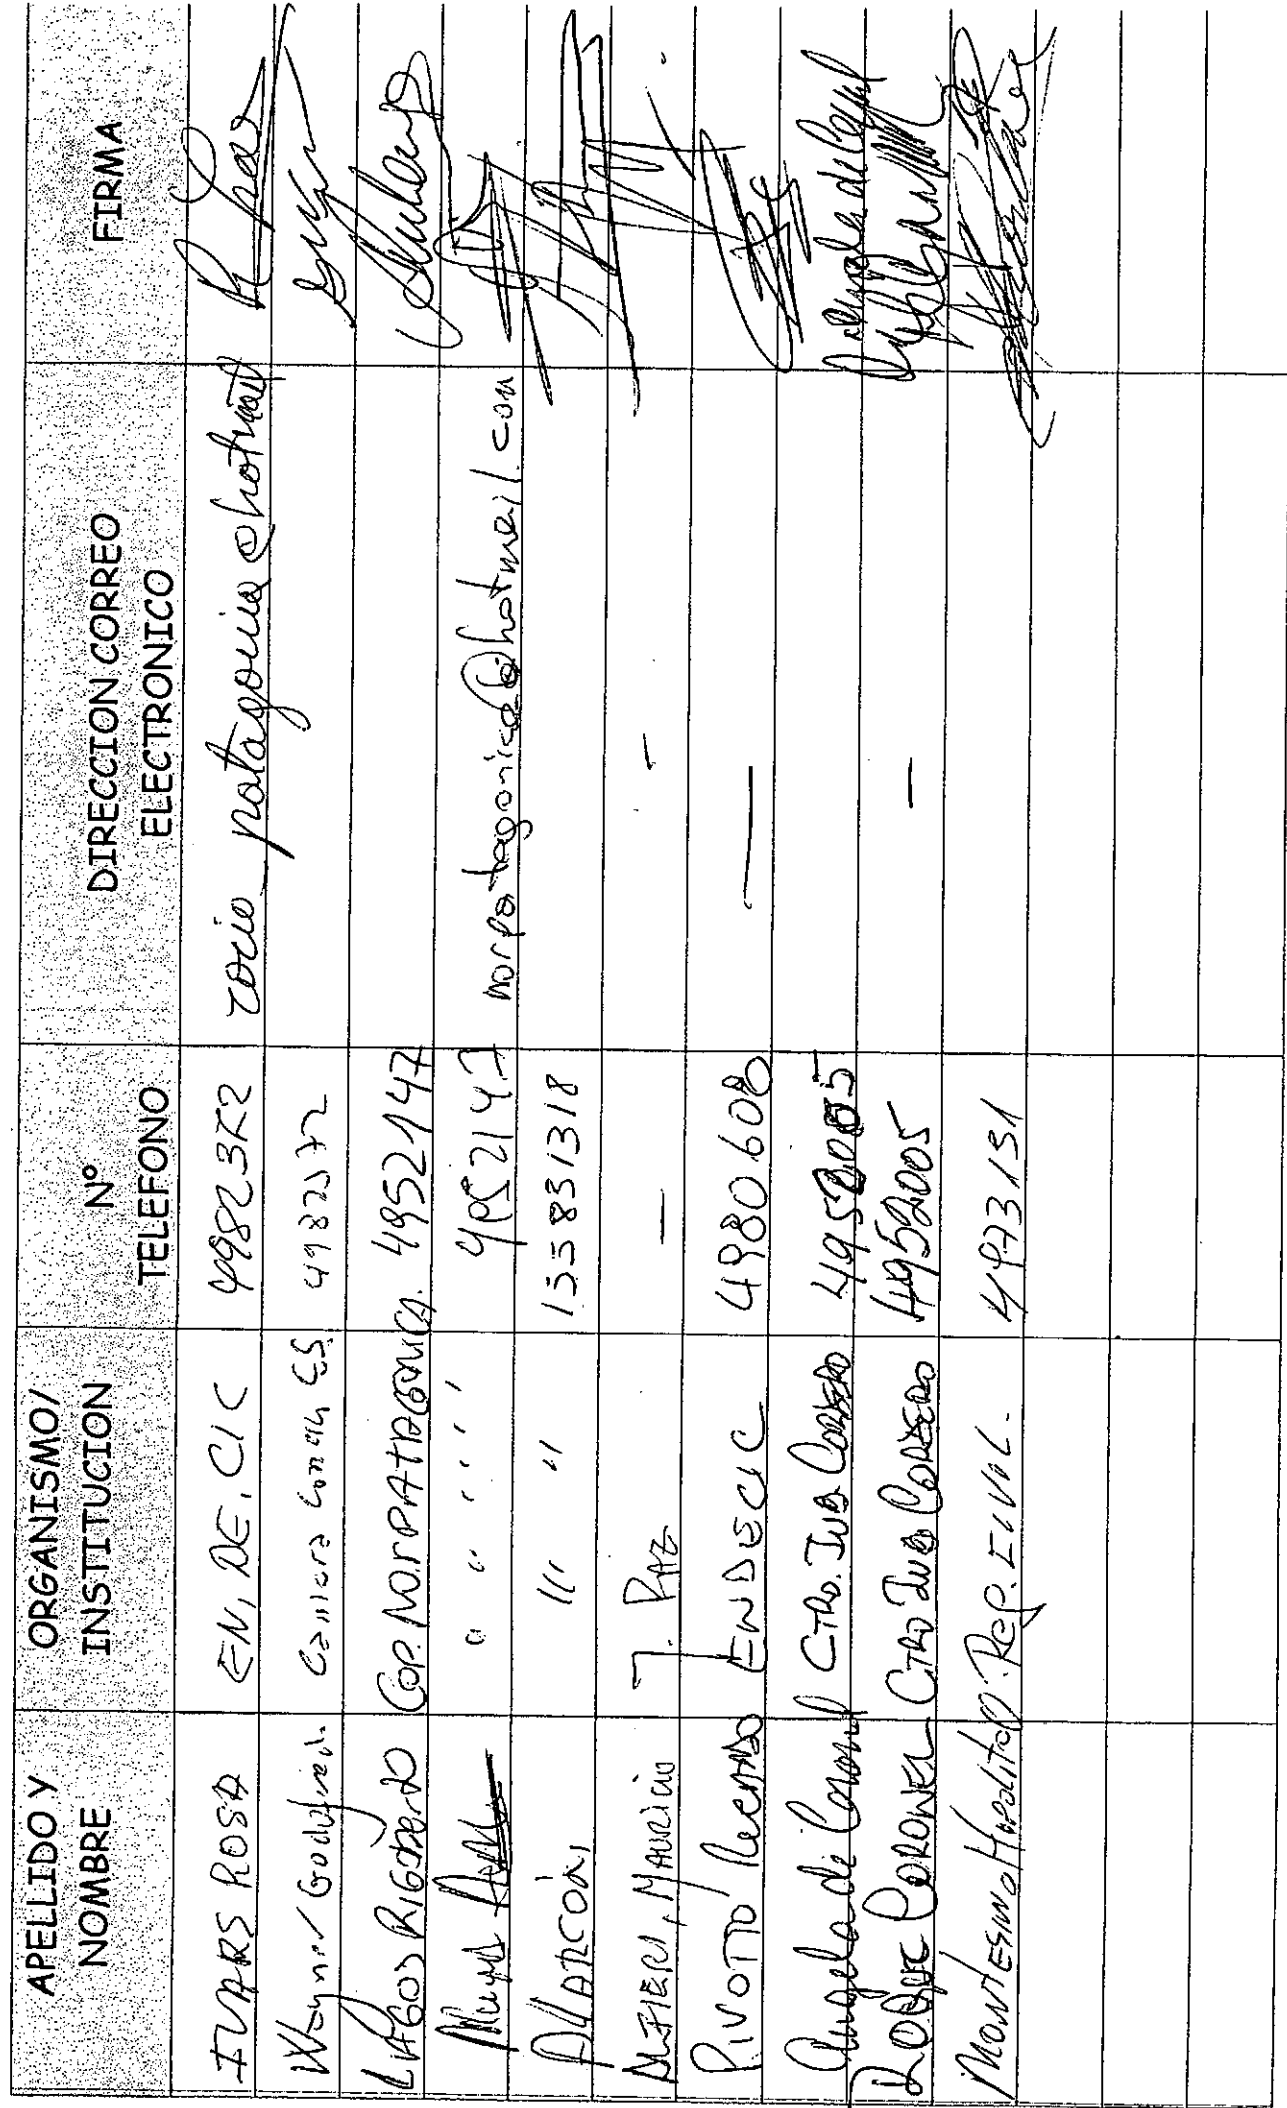 APELLIDO Y NOMBRE ORGANISMO/ INSTITUCION N° TELEFONO DIRECCION CORREO ELECTRONICO FIRMA
IVARS ROSA EN, DE, CIC 4982352 rocio_patagonia@hotmail
Wayner Godofredo 4982572
LAGOS RIGOBERTO COP. NORPATAGONICA. 4952147
4952147 norpatagonica@hotmail.com
ALARCON, "' " 155831318
ALFIERI, MAURICIO J. PAZ — -
PIVOTTO ENDECIC 4980608 —
Angela de Coronel CTRO. JUB. CORDERO 4952005
ROQUE CORONEL CTRO JUB CORDERO 4952005 —
MONTESINO HIPOLITO Rep. 4973151